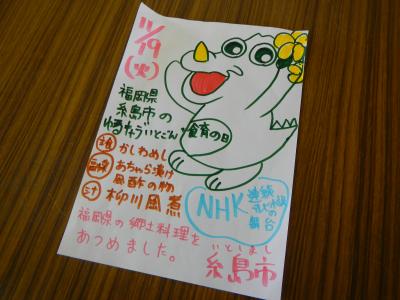 11/19
(火)
福岡県
糸島市の
ゆるキャラいとごん
食育の日
主食 かしわめし
副菜 あちゃら漬け
酢の物
汁 柳川風煮
NHK 連続
テレビ小説
の
舞台
福岡県の郷土料理を
あつめました。
いとしまし
糸島市